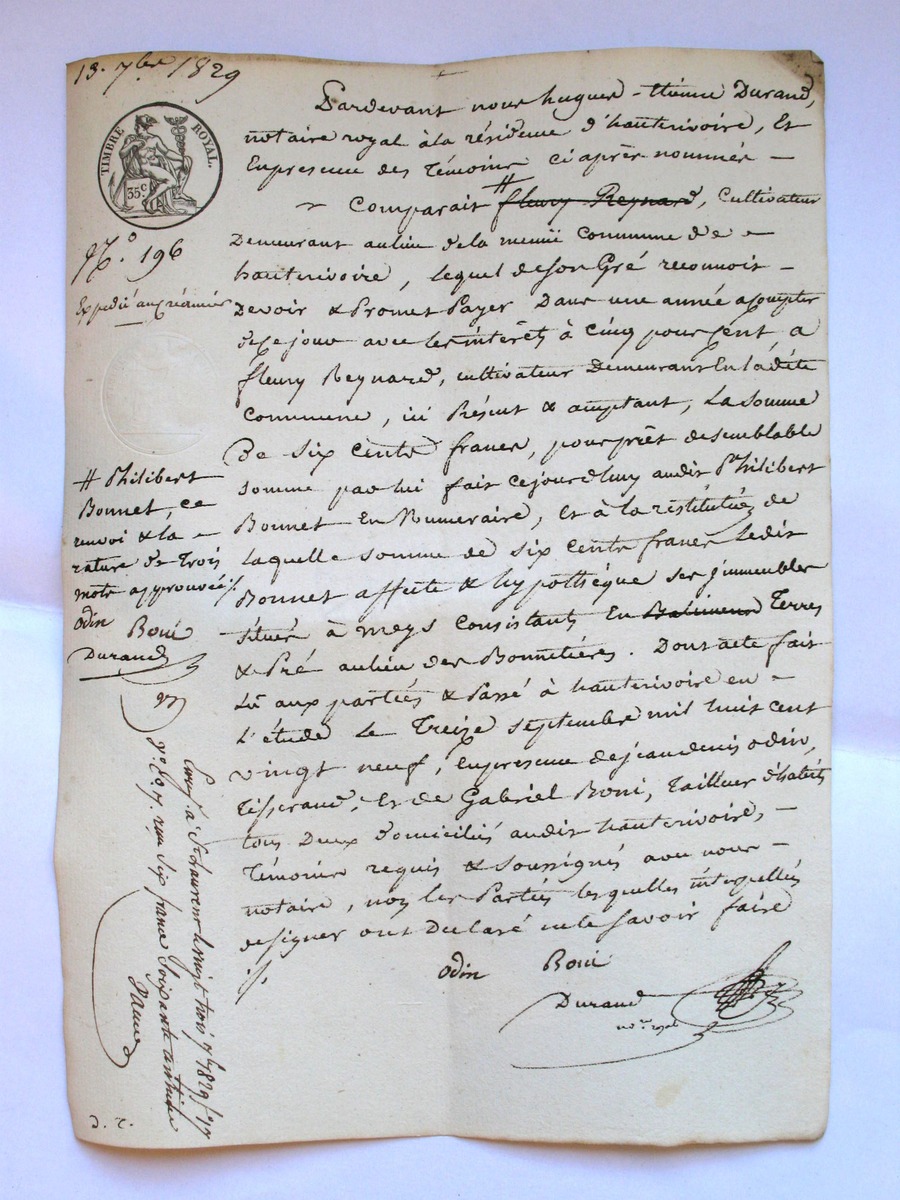 13. 7bre 1829
TIMBRE ROYAL.
35.c
N.o 196
Expedié au créancier
Pardevant nous hugues-Etienne Durand,
notaire royal à la résidence d'hauterivoire, Et
En presence des Témoins ci après nommés —
Comparait # fleury Reynard, cultivateur
Demeurant au lieu de la commune de
hauterivoire, lequel de son Gré reconnoit —
Devoir & Promet Payer Dans une année a compter
de ce jour avec les intérêts à Cinq pour cent, a
fleury Reynard, cultivateur Demeurant En la dite
Commune, ici Présent & acceptant, La somme
De six cents francs, pour prêt de semblable
somme par lui fait cejourd'huy audit Philibert
Bonnet En Numeraire, Et à la restitution de
laquelle somme de six cents francs Ledit
Bonnet affecte & hypothèque ses immeubles
situés à Meys Consistants En Batiments Terres
& Pré au lieu des Bonnetières. Dont acte fait
Lu aux parties & Passé à hauterivoire en —
L'étude Le Treize septembre mil huit cent
vingt neuf, En presence de jean denis odin,
Tisserand, Et de Gabriel Boni, Tailleur d'habits
tous Deux Domiciliés audit hauterivoire, —
Témoins requis & soussignés avec nous —
notaire, non les Parties lesquelles interpellées
de signer ont Declaré ne le savoir faire
odin Boni
Durand
nore royal
# Philibert
Bonnet, ce
renvoi & la
rature de Trois
mots approuvés
odin
Boni
Durand
Enreg. à St Laurent le vingt trois 7bre 1829 fo
Ro six francs soixante centimes
D. C.